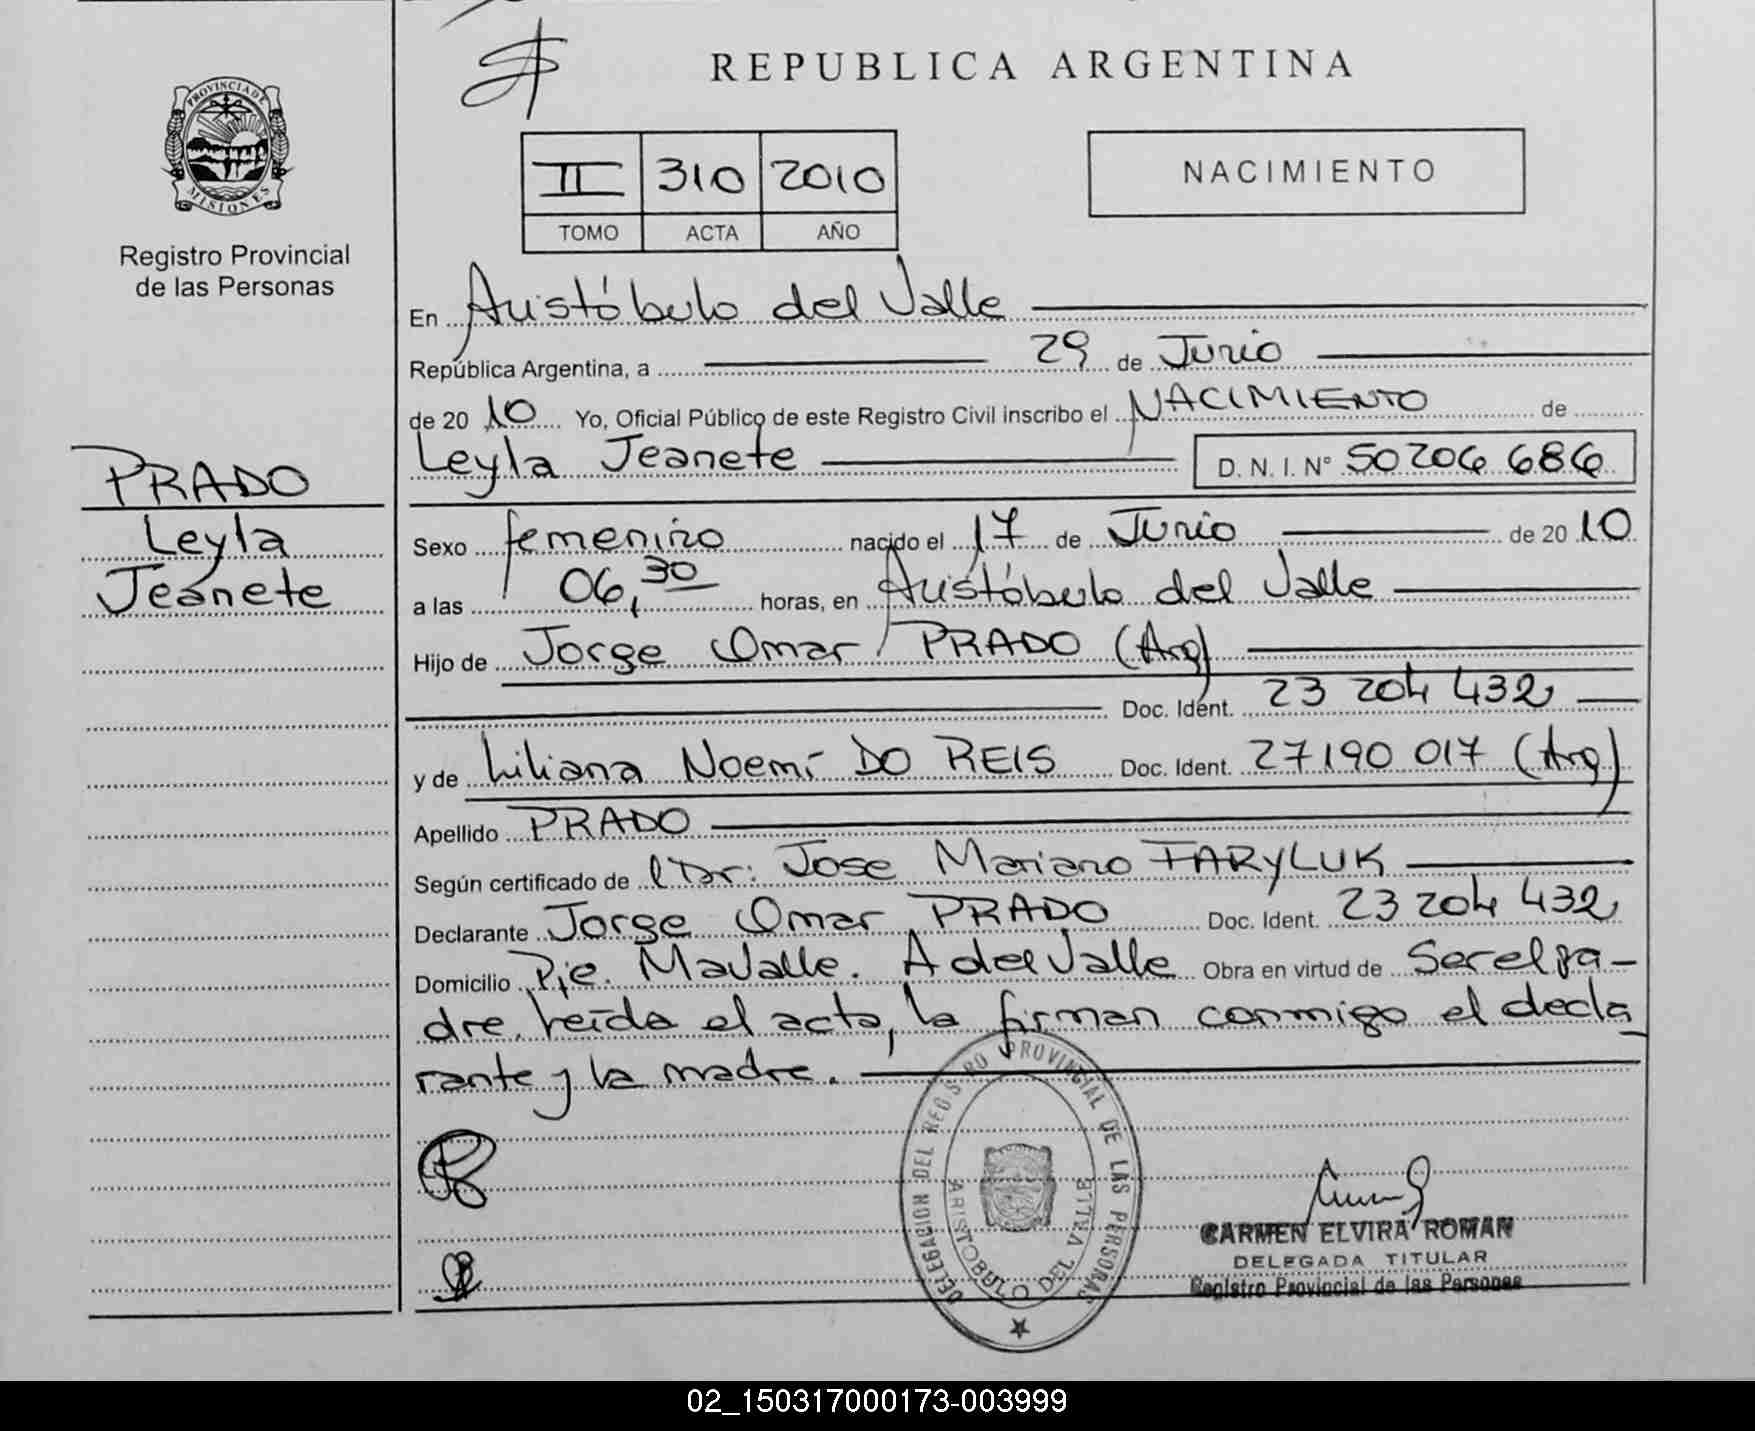 REPUBLICA ARGENTINA
PROVINCIA DE MISIONES
Registro Provincial
de las Personas
II 310 2010
TOMO ACTA AÑO
NACIMIENTO
En Aristóbulo del Valle
República Argentina, a 29 de Junio
de 20 10 Yo, Oficial Público de este Registro Civil inscribo el NACIMIENTO de
Leyla Jeanete D. N. I. N° 50206 686
PRADO
Leyla
Jeanete
Sexo femenino nacido el 17 de Junio de 20 10
a las 06,30 horas, en Aristóbulo del Valle
Hijo de Jorge Omar PRADO (Arg)
Doc. Ident. 23 204 432
y de Liliana Noemí DO REIS Doc. Ident. 27190 017 (Arg)
Apellido PRADO
Según certificado de l Dr: Jose Mariano FARYLUK
Declarante Jorge Omar PRADO Doc. Ident. 23 204 432
Domicilio Pje. MaValle. A del Valle Obra en virtud de Ser el pa-
dre. Leída el acta, la firman conmigo el decla
rante y la madre.
DELEGACION DEL REGISTRO PROVINCIAL DE LAS PERSONAS
ARISTOBULO DEL VALLE
CARMEN ELVIRA ROMAN
DELEGADA TITULAR
Registro Provincial de las Personas
02_150317000173-003999